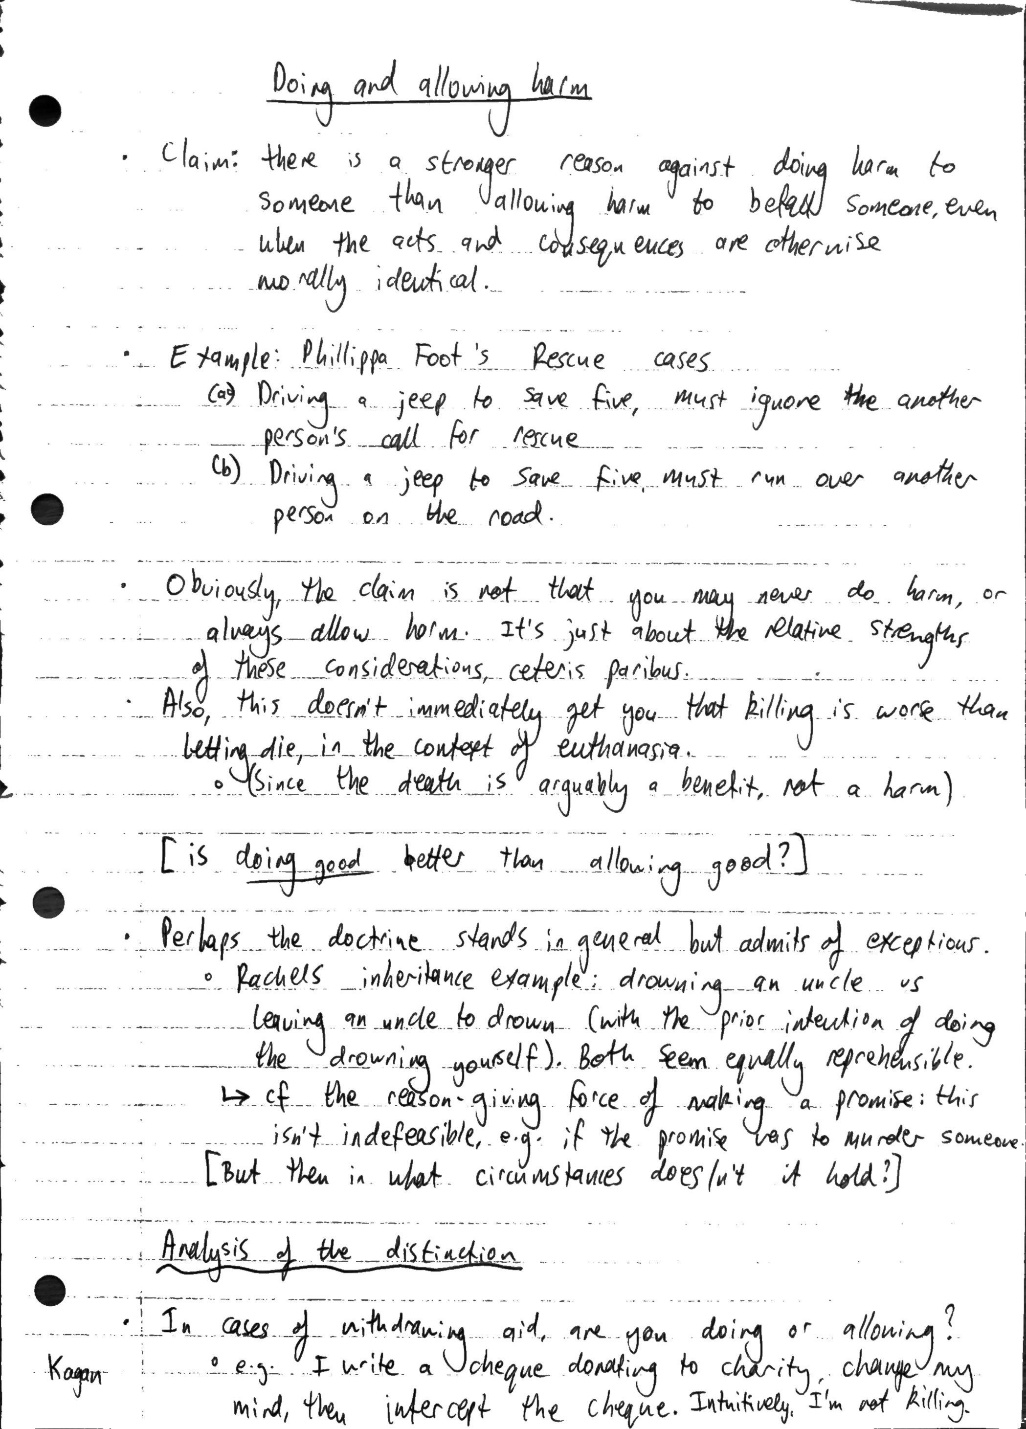 Doing and allowing harm
• Claim: there is a stronger reason against doing harm to
someone than allowing harm to befall someone, even
when the acts and consequences are otherwise
morally identical.
• Example: Phillippa Foot's Rescue cases
(a) Driving a jeep to save five, must ignore the another
person's call for rescue
(b) Driving a jeep to save five, must run over another
person on the road.
• Obviously, the claim is not that you may never do harm, or
always allow harm. It's just about the relative strengths
of these considerations, ceteris paribus.
• Also, this doesn't immediately get you that killing is worse than
letting die, in the context of euthanasia.
o (since the death is arguably a benefit, not a harm)
[is doing good better than allowing good?]
• Perhaps the doctrine stands in general but admits of exceptions.
o Rachels inheritance example: drowning an uncle vs
leaving an uncle to drown (with the prior intention of doing
the drowning yourself). Both seem equally reprehensible.
↳ cf the reason-giving force of making a promise: this
isn't indefeasible, e.g. if the promise was to murder someone.
[But then in what circumstances does/n't it hold?]
Analysis of the distinction
• In cases of withdrawing aid, are you doing or allowing?
Kagan o e.g. I write a cheque donating to charity, change my
mind, then intercept the cheque. Intuitively, I'm not killing.